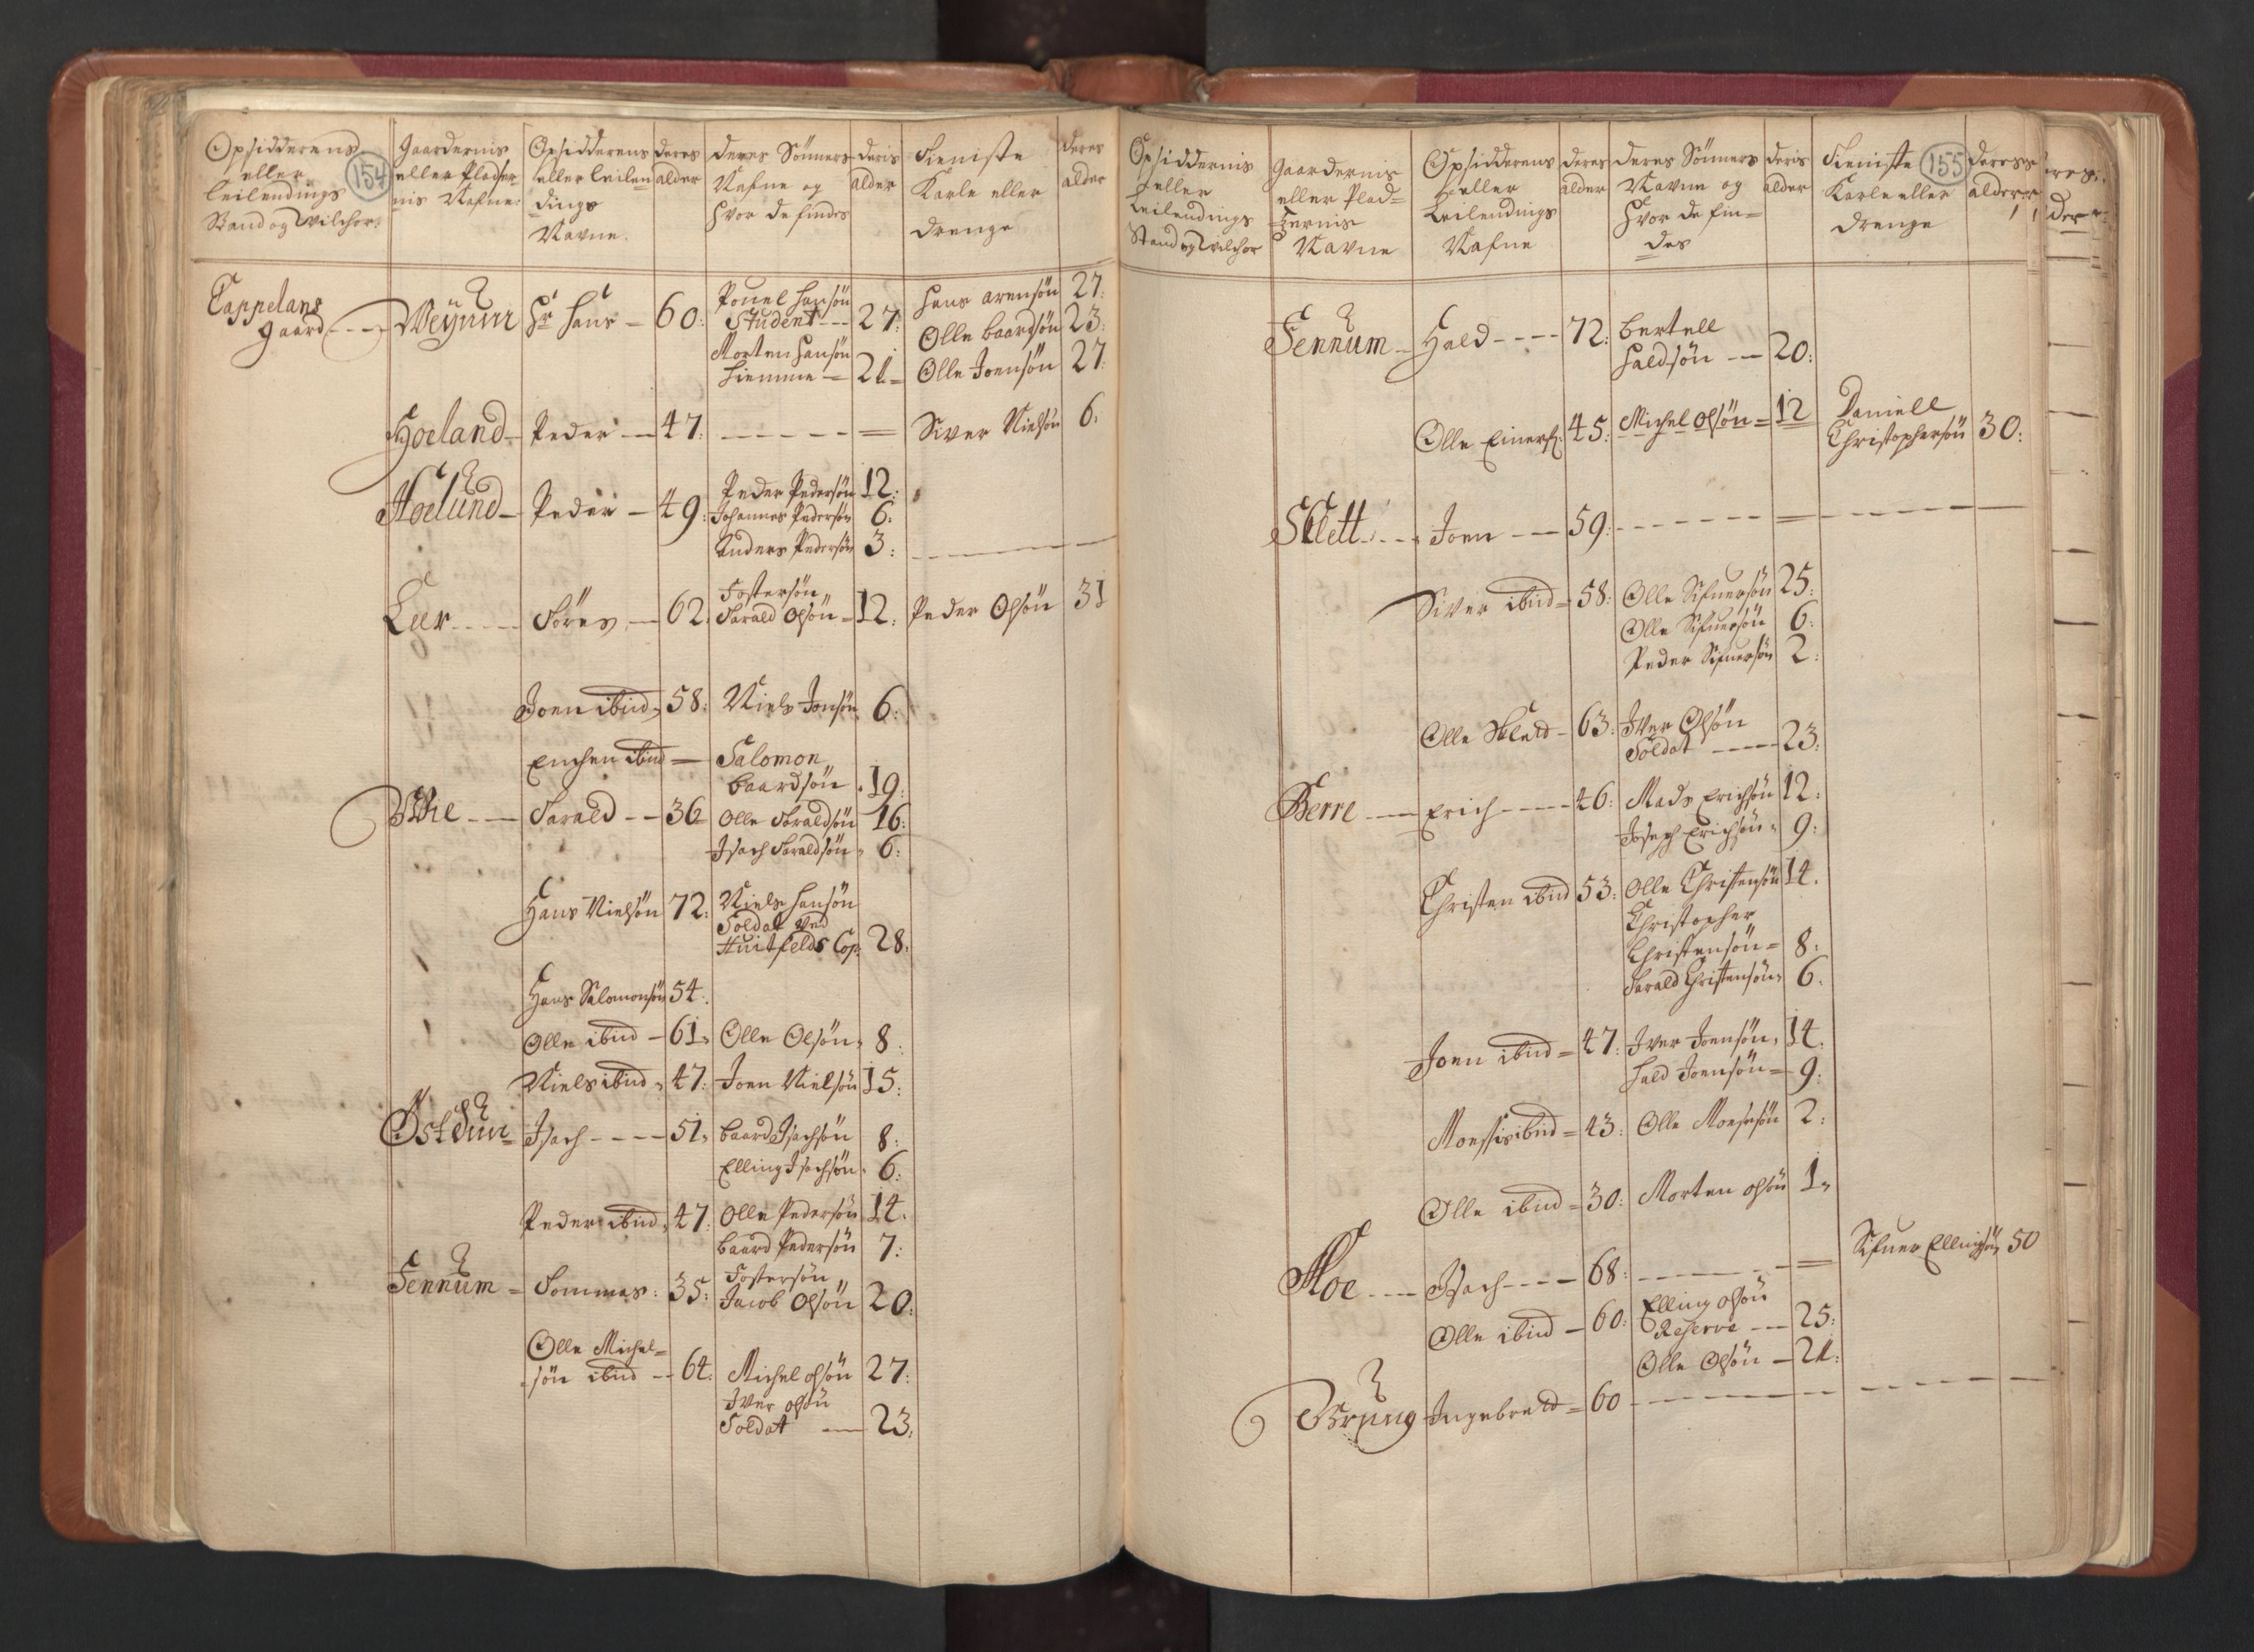 154
Opsidderens eller Leilendings Stand og Wilchor:
Gaardernis eller Pladsernis Nafne:
Opsidderens eller Leilendings Navne.
deres alder
deres Sønners Nafne og hvor de findes
deris alder
Tieniste Karle eller Drenge
deres alder
Cappelans gaard --- Weÿum Hr Hans - 60: Pouel Hansøn Student --- 27: Hans Arensøn 27:
Olle Baardsøn 23:
Morten Hansøn hiemme - 21 = Olle Joensøn 27
Hoeland - Peder - 47: - - - - - = Siver Nielsøn 6.
Hoelund - Peder - 49: Peder Pedersøn 12:
Johannes Pedersøn 6:
Anders Pedersøn 3: - - - -
Leer - - - Tøres - 62. Fostersøn
Tarald Olsøn = 12: Peder Olsøn 31
Joen ibid, 58: Niels Jonsøn 6:
Enchen ibid - Salomon
Baardsøn . 19:
Wiie - - Tarald - - 36 Olle Taraldsøn 16:
Isach Taraldsøn, 6:
Hans Nielsøn 72: Niels Hansøn
Soldat ved
Huitfelds Cop: 28:
Hans Salomonsøn 54:
Olle ibid - 61, Olle Olsøn, 8:
Niels ibid, 47: Joen Nielsøn 15:
Østdun = Isach - - - - 51, Baard Isachsøn 8:
Elling Isachsøn, 6:
Peder ibid, 47: Olle Pedersøn 14.
Baard Pedersøn 7:
Fennum = Tommas: 35: Fostersøn
Jacob Olsøn 20:
Olle Michel=
søn ibid - - 64: Michel Olsøn 27:
Iver Olsøn
Soldat - - 23:
155
Opsiddernis eller Leilendings Stand og vilchor
Gaardernis eller Pladzernis Navne
Opsidderens eller Leilendings Nafne
deres alder
deres Sønners Navne og hvor de findes
deris alder
Tieniste Karle eller Drenge
deres alder
Fennum - Hald - - - - 72: Bertell
Haldsøn - - 20:
Olle Einers: 45: Michel Olsøn = 12 Daniell
Christophersøn 30:
Sklett - - - Joen - - - 59: - - - - - = - - - - -
Siver ibid = 58: Olle Sifuersøn 25:
Olle Sifuersøn 6:
Peder Sifuersøn 2:
Olle Sklett - 63: Iver Olsøn
Soldat - - - 23:
Berre - - - Erich - - - - 46: Mads Erichsøn 12:
Joseph Erichsøn = 9:
Christen ibid 53: Olle Christensøn 14.
Christopher
Christensøn = 8:
Tarald Christensøn, 6.
Joen ibid = 47: Iver Joensøn, 14.
Hald Joensøn = 9:
Moessis ibid = 43: Olle Moesesøn 2:
Olle ibid = 30: Morten Olsøn 1,
Moe - - - Isach - - - - 68: - - - - - = Sifuer Ellingsøn 50
Olle ibid - 60: Elling Olsøn
Reserve - - 25:
Olle Olsøn - 21:
Bruug Ingebrett = 60 - - - - - - - - - -